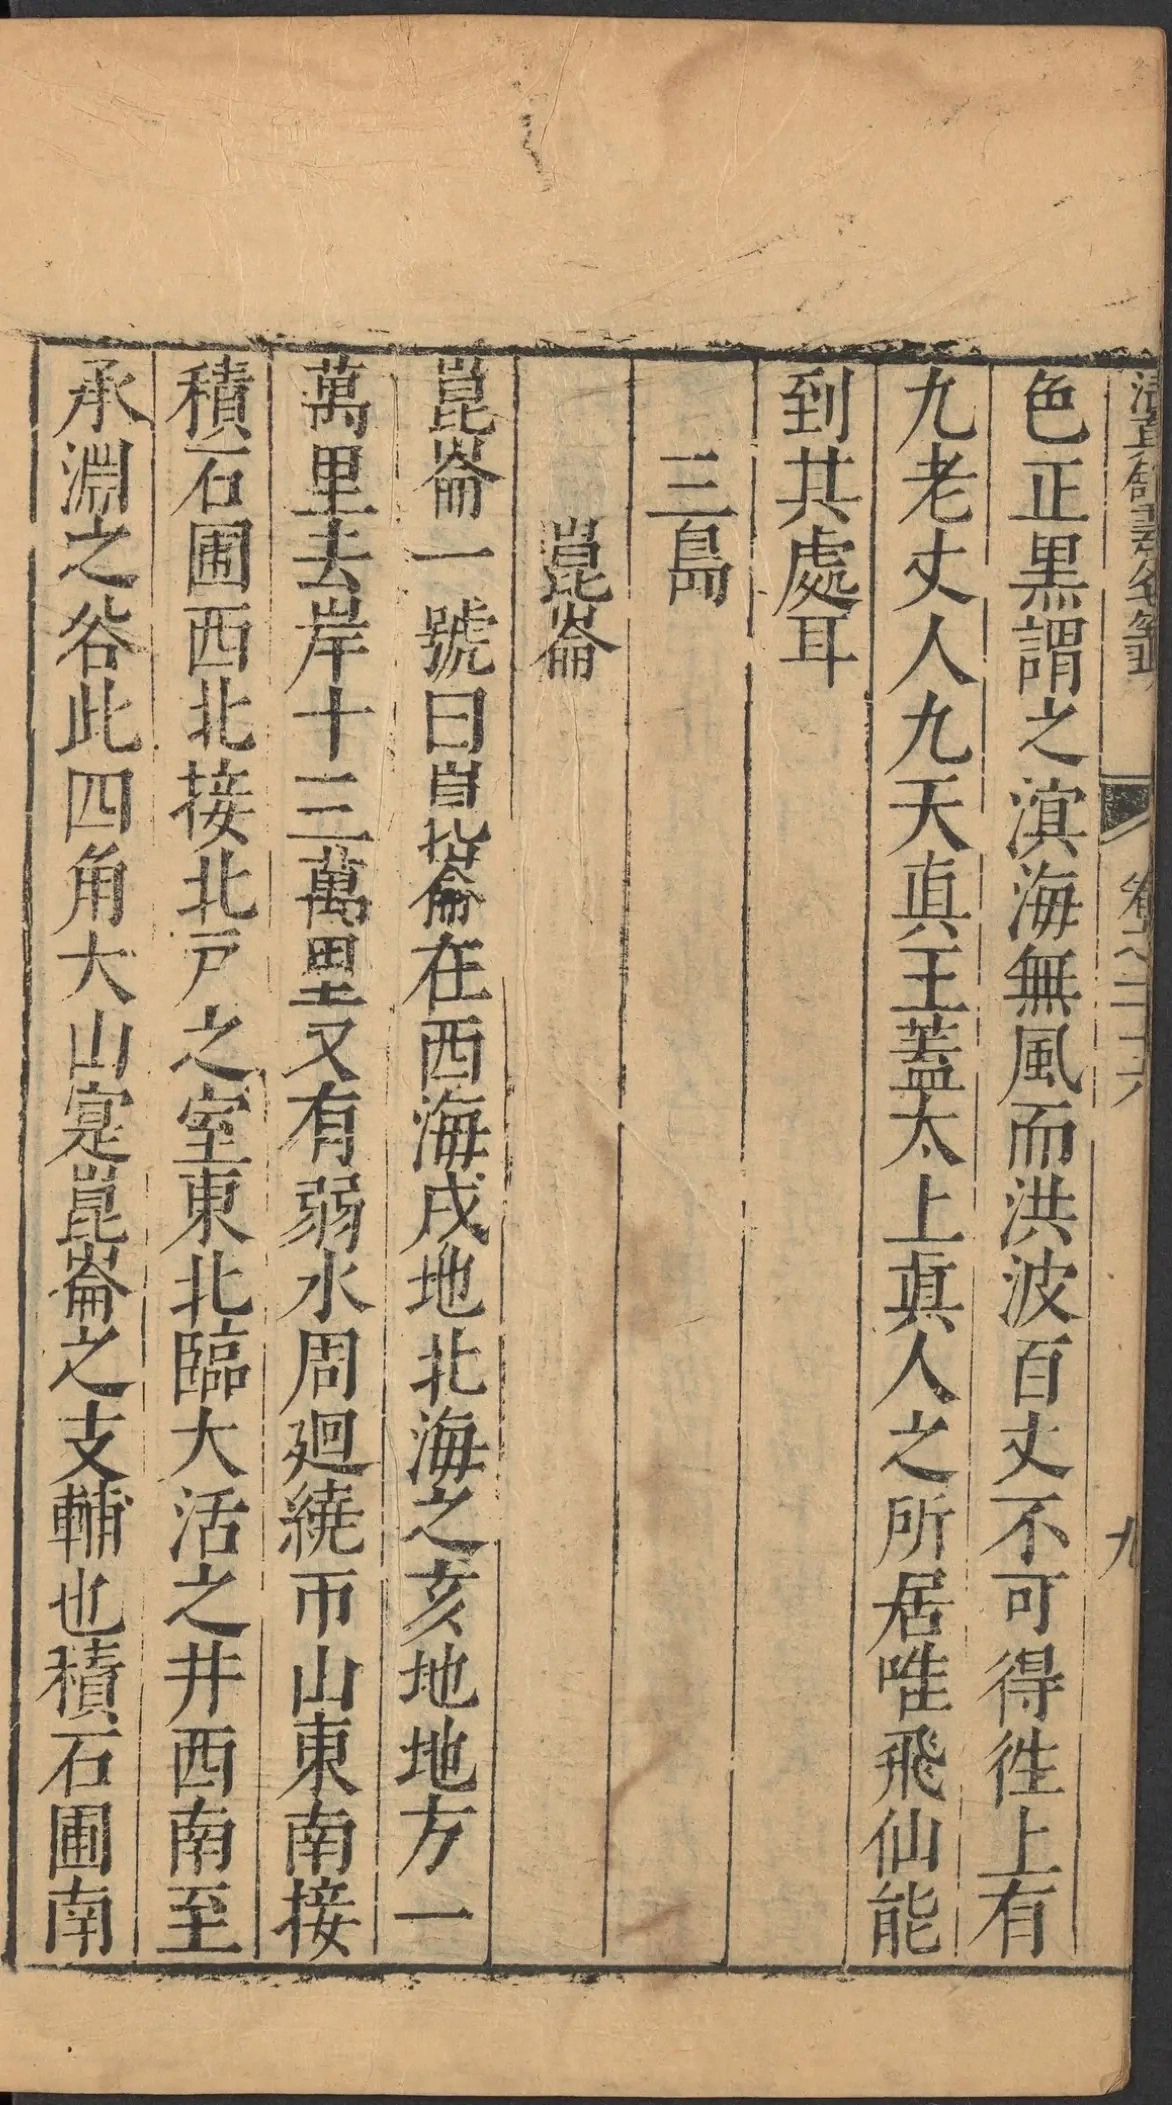 清真館雲笈七籤 卷之二十六 九
色正黒謂之溟海無風而洪波百丈不可得徃上有
九老丈人九天眞王蓋太上眞人之所居唯飛仙能
到其處耳
三島
崑崙
崑崙一號曰崑崙在西海戌地北海之亥地地方一
萬里去岸十三萬里又有弱水周廻繞帀山東南接
積石圃西北接北戸之室東北臨大活之井西南至
承淵之谷此四角大山寔崑崙之支輔也積石圃南